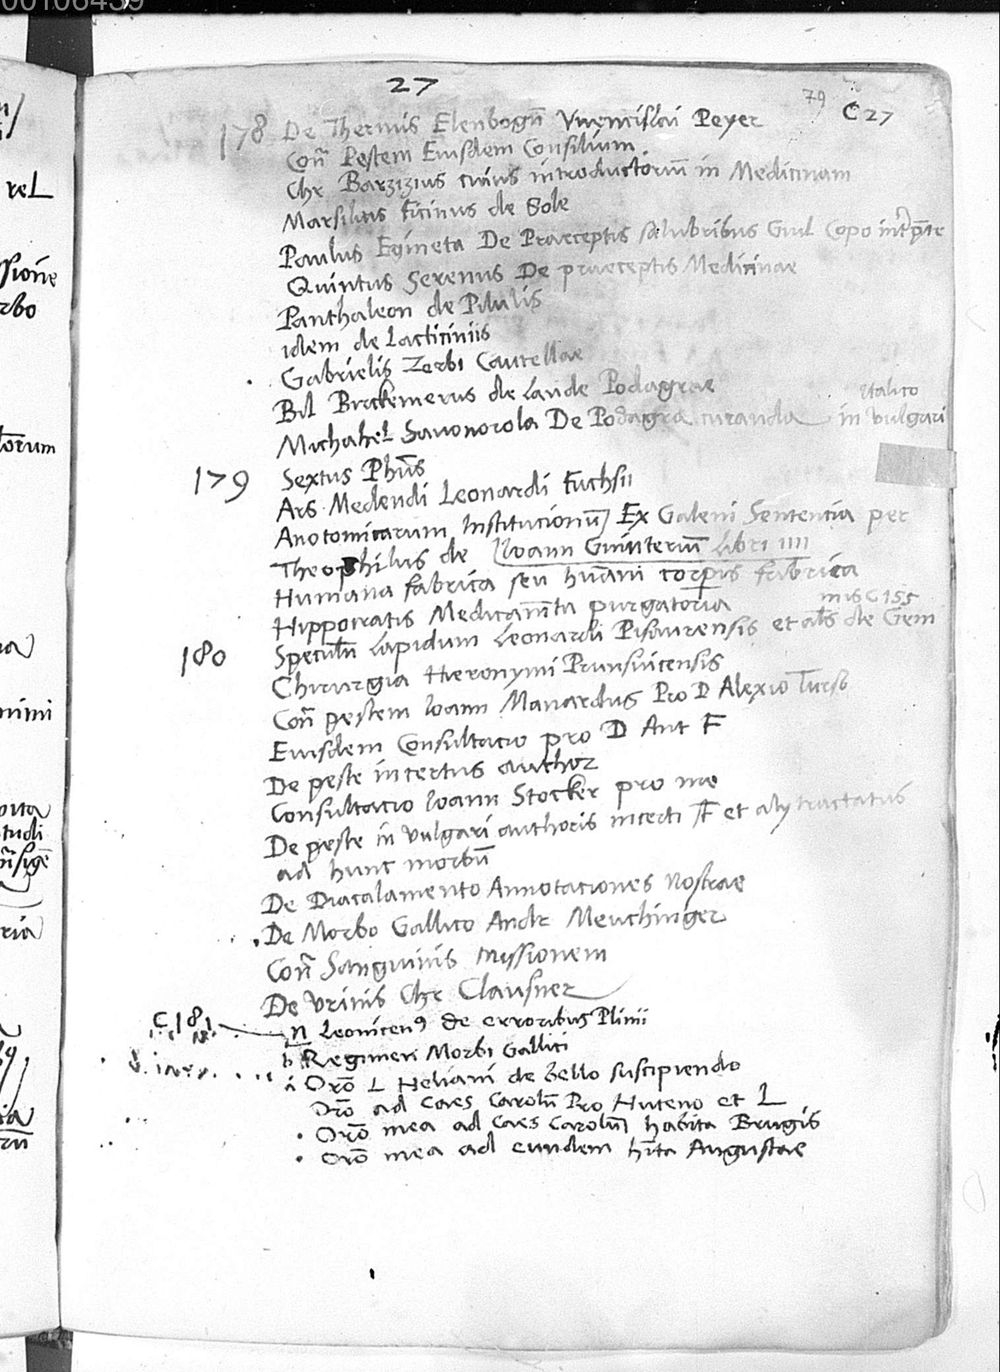 00106439
27
79
C 27
178 De Thermis Elenbogñ Vuencislai Peyer
Coñ Pestem Eiusdem Consilium
Chr Barzizius cuius introductoriũ in Medicinam
Marsilius Ficinus de Sole
Paulus Egineta De Praeceptis salubribus Guil Copo
Quintus Serenus De praeceptis Medicinae
Panthaleon de Pilulis
idem de Lacticiniis
Gabrielis Zerbi Cautellae
Bil Birckemerus de laude Podagrae
Italico
Michahel Savonorola De Podagra curanda in vulgari
179 Sextus Phũs
Ars Medendi Leonardi Fuchsii
Anotomicarum Institucionũ Ex Galeni Sententia per
Theophilus de Ioann Guinteriũ Libri IIII
Humana fabrica seu hũani corporis fabrica
Hippocratis Medicamẽta purgatoria
inis C 155
180 Speculũ Lapidum Leonardi Pisaurensis et als de Gem
Chirurgia Hieronymi Prunsuicensis
Coñ pestem Ioann Manardus Pro D Alexio Turso
Eiusdem Consultatio pro D Ant F
De peste incertus author
Consultacio Ioann Stocker pro me
De peste in vulgari authoris incerti et aly tractatus
ad hunc morbũ
De Diacalamento Annotaciones nostrae
De Morbo Gallico Andr Meuchinger
Coñ Sanguinis missionem
De Vrinis Chr Clausner
C 181 n Leonicen9 de erroribus Plinii
b Regimen Morbi Gallici
a Orõ L Heliani de bello suscipiendo
Orõ ad Caes Carolũ Pro Huteno et L
Orõ mea ad Caes Carolũ habita Brugis
Orõ mea ad eundem hĩta Augustae